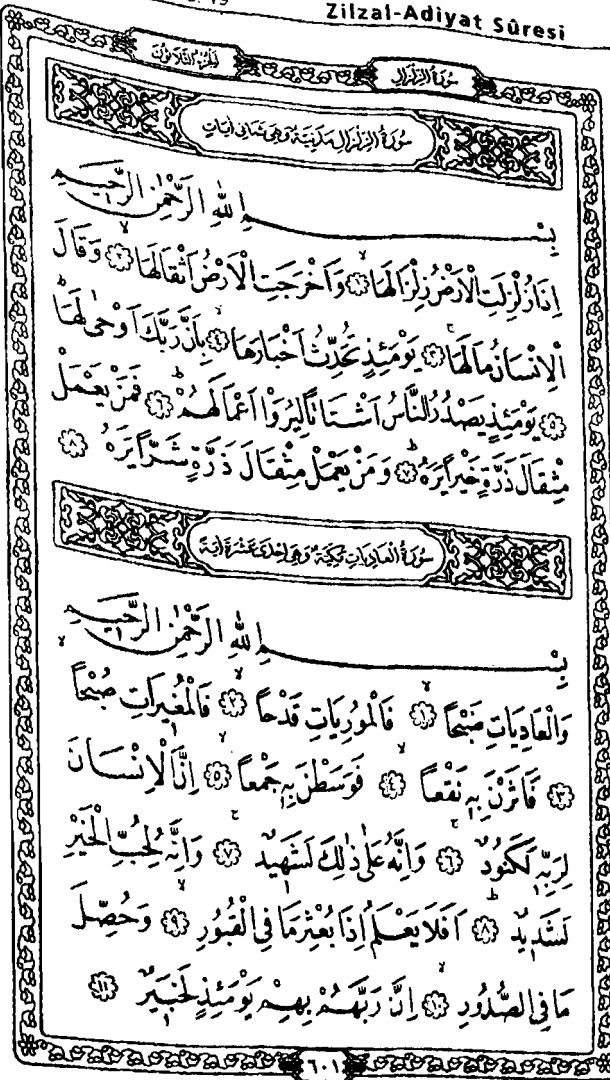 Zilzal-Adiyat Sûresi
سُورَةُ الزِّلْزَالِ
اَلْجُزْءُ الثَّلَاثُونَ
سُورَةُ الزِّلْزَالِ مَدَنِيَّةٌ وَهِيَ ثَمَانِي اٰيَاتٍ
بِسْمِ اللّٰهِ الرَّحْمٰنِ الرَّحِيمِ
اِذَا زُلْزِلَتِ الْاَرْضُ زِلْزَالَهَا ﴿١﴾ وَاَخْرَجَتِ الْاَرْضُ اَثْقَالَهَا ﴿٢﴾ وَقَالَ
الْاِنْسَانُ مَا لَهَا ﴿٣﴾ يَوْمَئِذٍ تُحَدِّثُ اَخْبَارَهَا ﴿٤﴾ بِاَنَّ رَبَّكَ اَوْحٰى لَهَا
﴿٥﴾ يَوْمَئِذٍ يَصْدُرُ النَّاسُ اَشْتَاتًا لِيُرَوْا اَعْمَالَهُمْ ﴿٦﴾ فَمَنْ يَعْمَلْ
مِثْقَالَ ذَرَّةٍ خَيْرًا يَرَهُ ﴿٧﴾ وَمَنْ يَعْمَلْ مِثْقَالَ ذَرَّةٍ شَرًّا يَرَهُ ﴿٨﴾
سُورَةُ الْعَادِيَاتِ مَكِّيَّةٌ وَهِيَ اِحْدٰى عَشْرَةَ اٰيَةً
بِسْمِ اللّٰهِ الرَّحْمٰنِ الرَّحِيمِ
وَالْعَادِيَاتِ ضَبْحًا ﴿١﴾ فَالْمُورِيَاتِ قَدْحًا ﴿٢﴾ فَالْمُغِيرَاتِ صُبْحًا
﴿٣﴾ فَاَثَرْنَ بِهِ نَقْعًا ﴿٤﴾ فَوَسَطْنَ بِهِ جَمْعًا ﴿٥﴾ اِنَّ الْاِنْسَانَ
لِرَبِّهِ لَكَنُودٌ ﴿٦﴾ وَاِنَّهُ عَلٰى ذٰلِكَ لَشَهِيدٌ ﴿٧﴾ وَاِنَّهُ لِحُبِّ الْخَيْرِ
لَشَدِيدٌ ﴿٨﴾ اَفَلَا يَعْلَمُ اِذَا بُعْثِرَ مَا فِي الْقُبُورِ ﴿٩﴾ وَحُصِّلَ
مَا فِي الصُّدُورِ ﴿١٠﴾ اِنَّ رَبَّهُمْ بِهِمْ يَوْمَئِذٍ لَخَبِيرٌ ﴿١١﴾
٦٠١